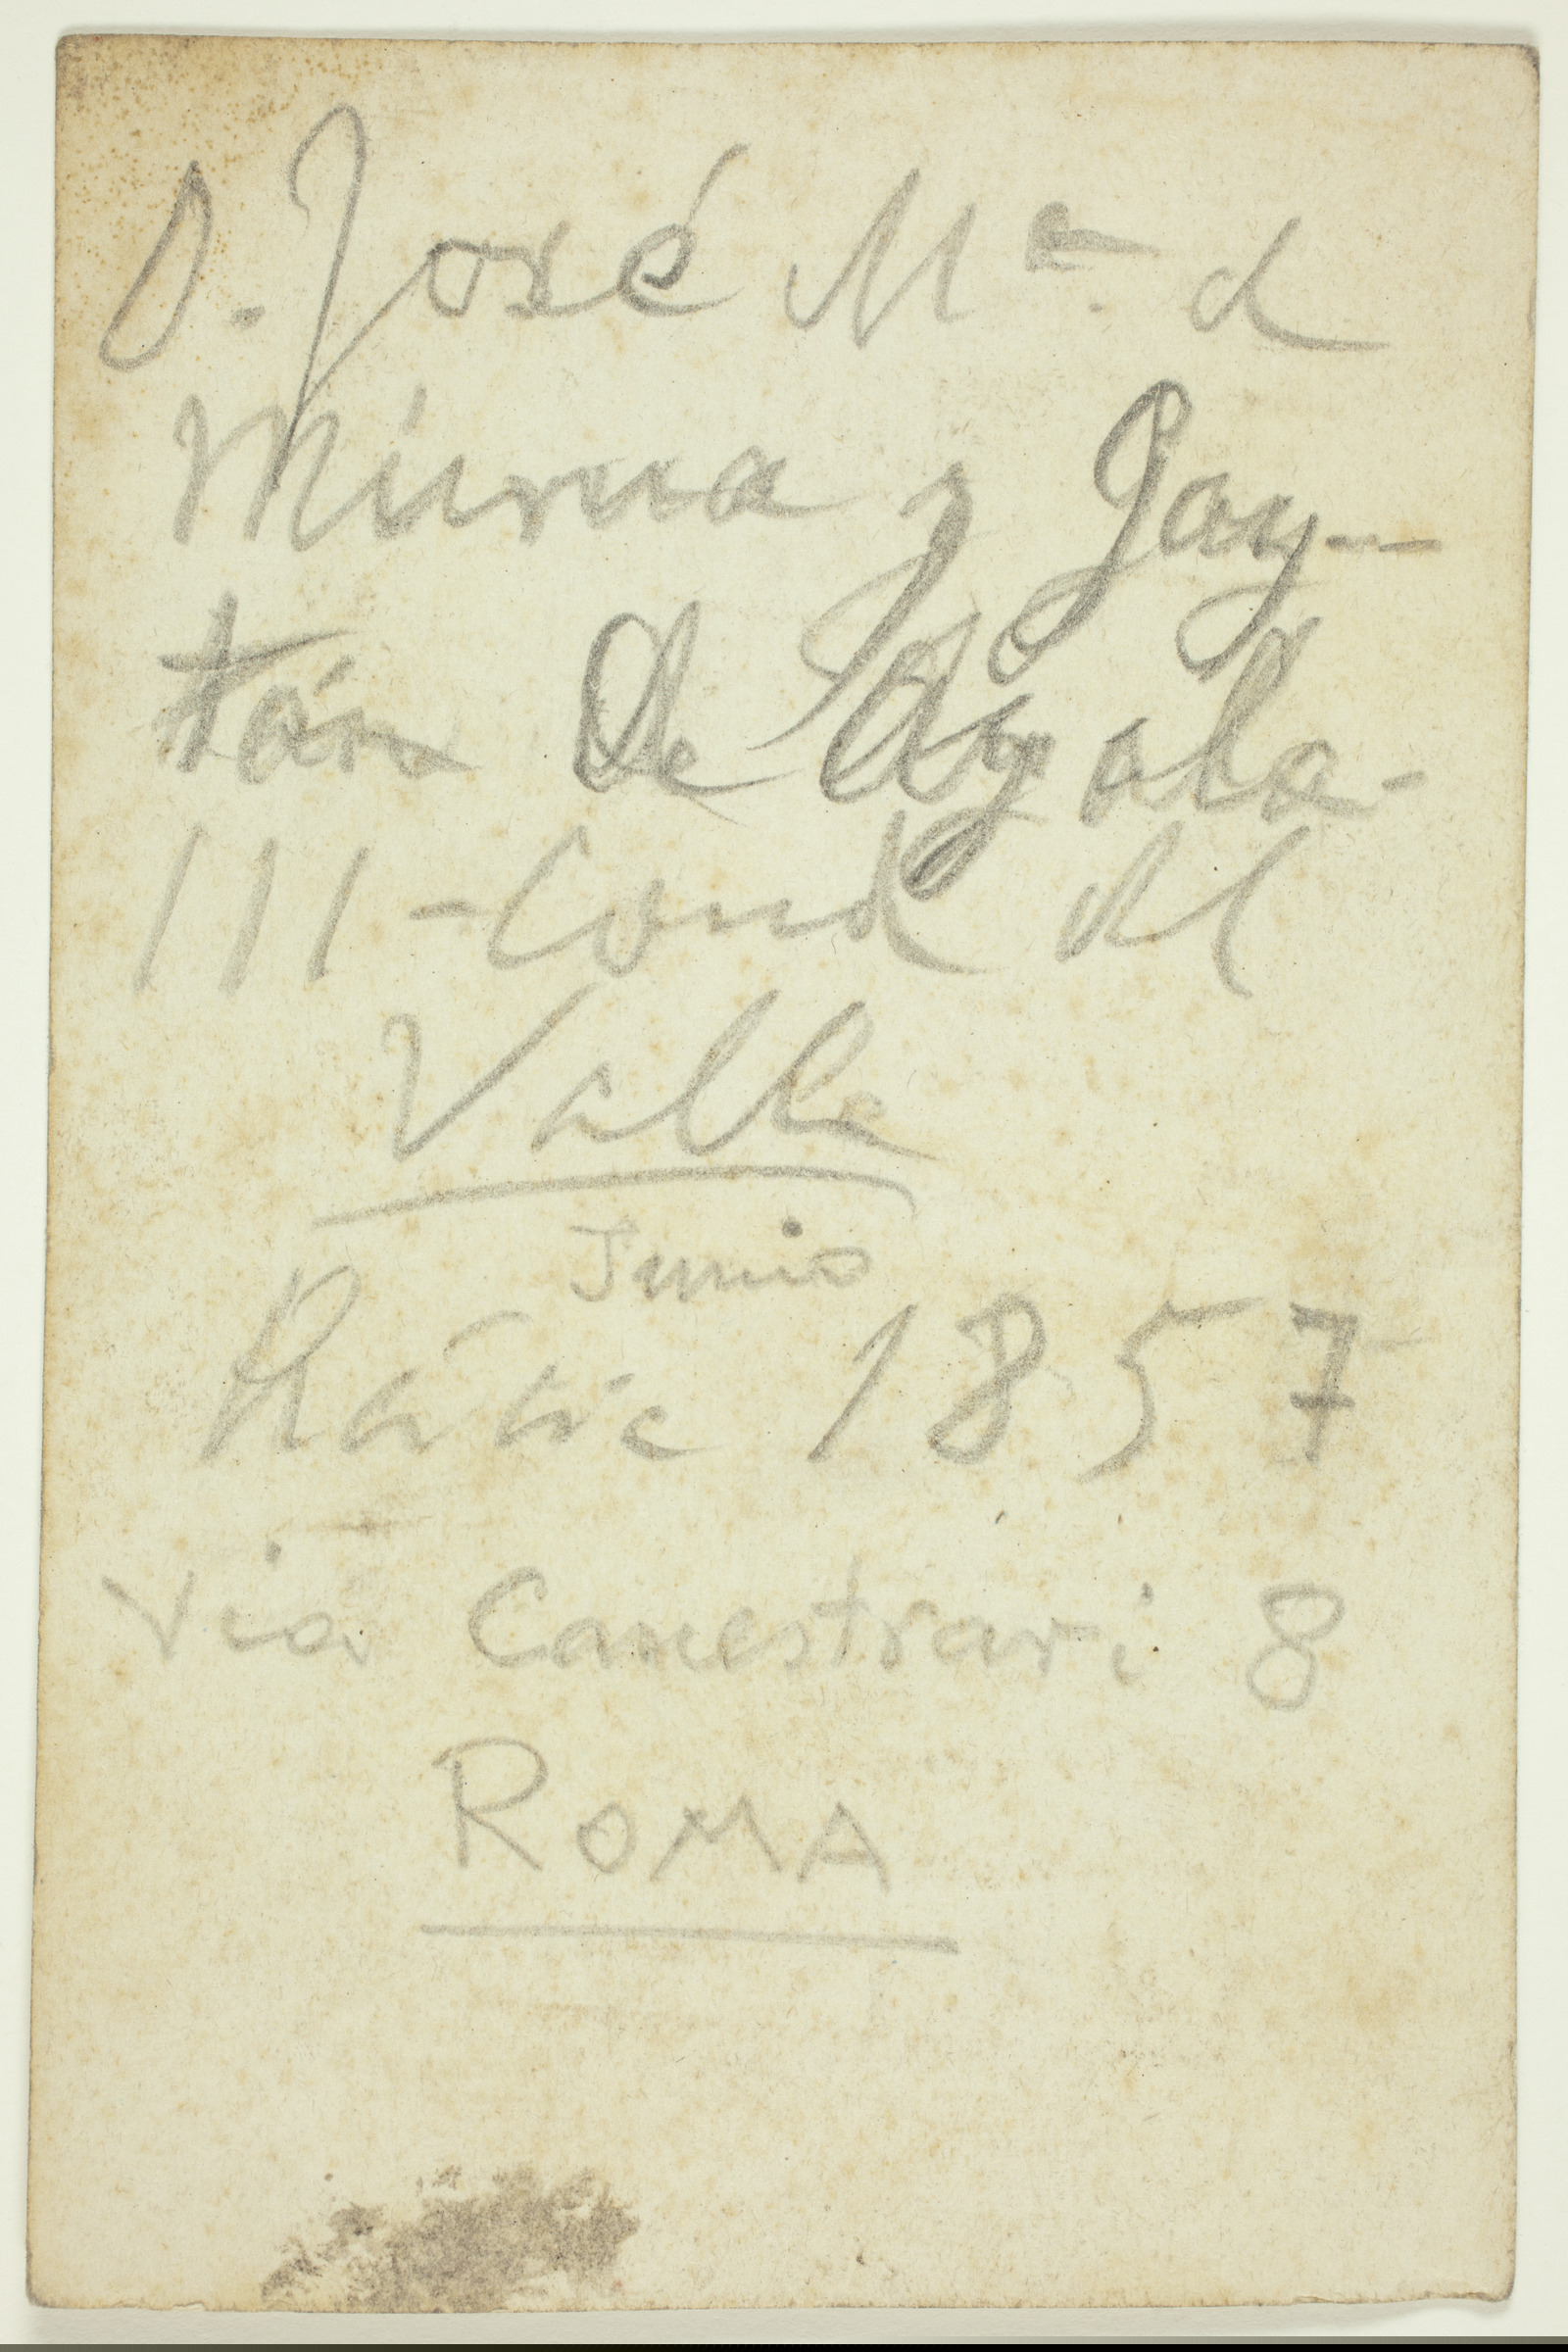 D. José Mª. de
Múrua y Gay—
tán de Ayala-
III - Conde del
Valle
Junio
1857
Via Canestrari 8
ROMA